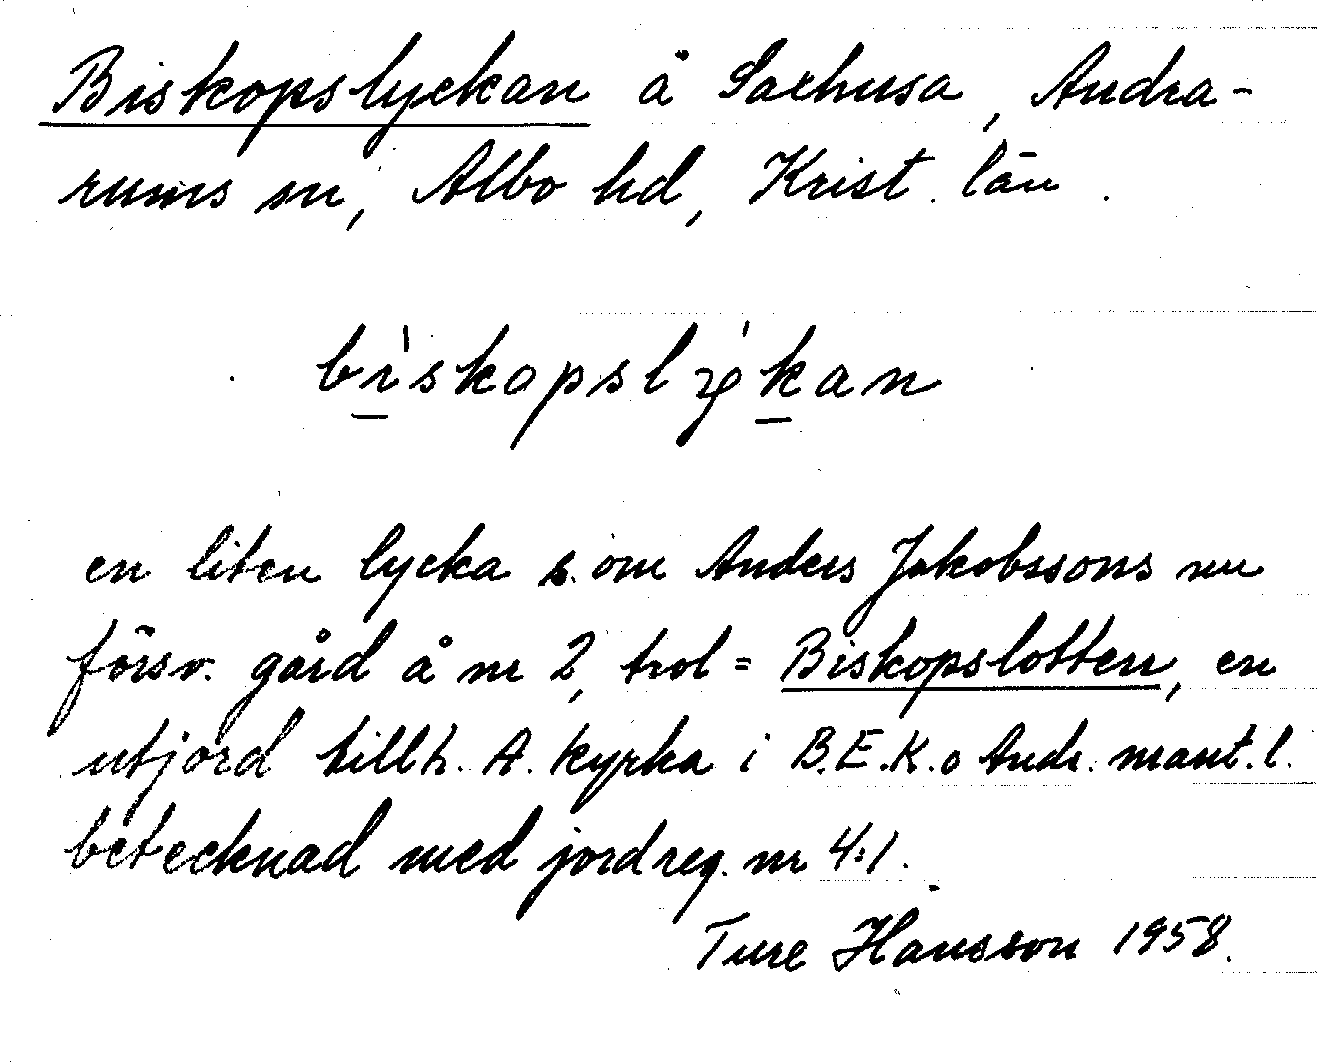 Biskopslyckan å Saxhusa, Andra-
rums sn, Albo hd, Krist. län.
biskopslykan
en liten lycka s. om Anders Jakobssons nu
försv. gård å nr 2, trol = Biskopslotten, en
utjord tillh. A. kyrka i B.E.K. o Andr. mant.l.
betecknad med jordreg. nr 4:1.
Ture Hansson 1958.